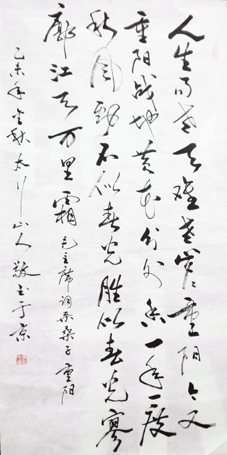 人生易老天难老岁岁重阳今又
重阳战地黄花分外香一年一度
秋风劲不似春光胜似春光寥
廓江天万里霜 毛主席词采桑子重阳
己未年金秋太行山人敬书于京